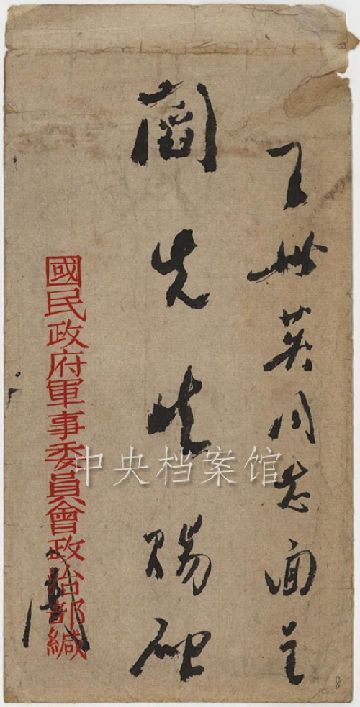 王世英同志面呈
阎先生赐啟
國民政府軍事委員會政治部緘
中央档案馆